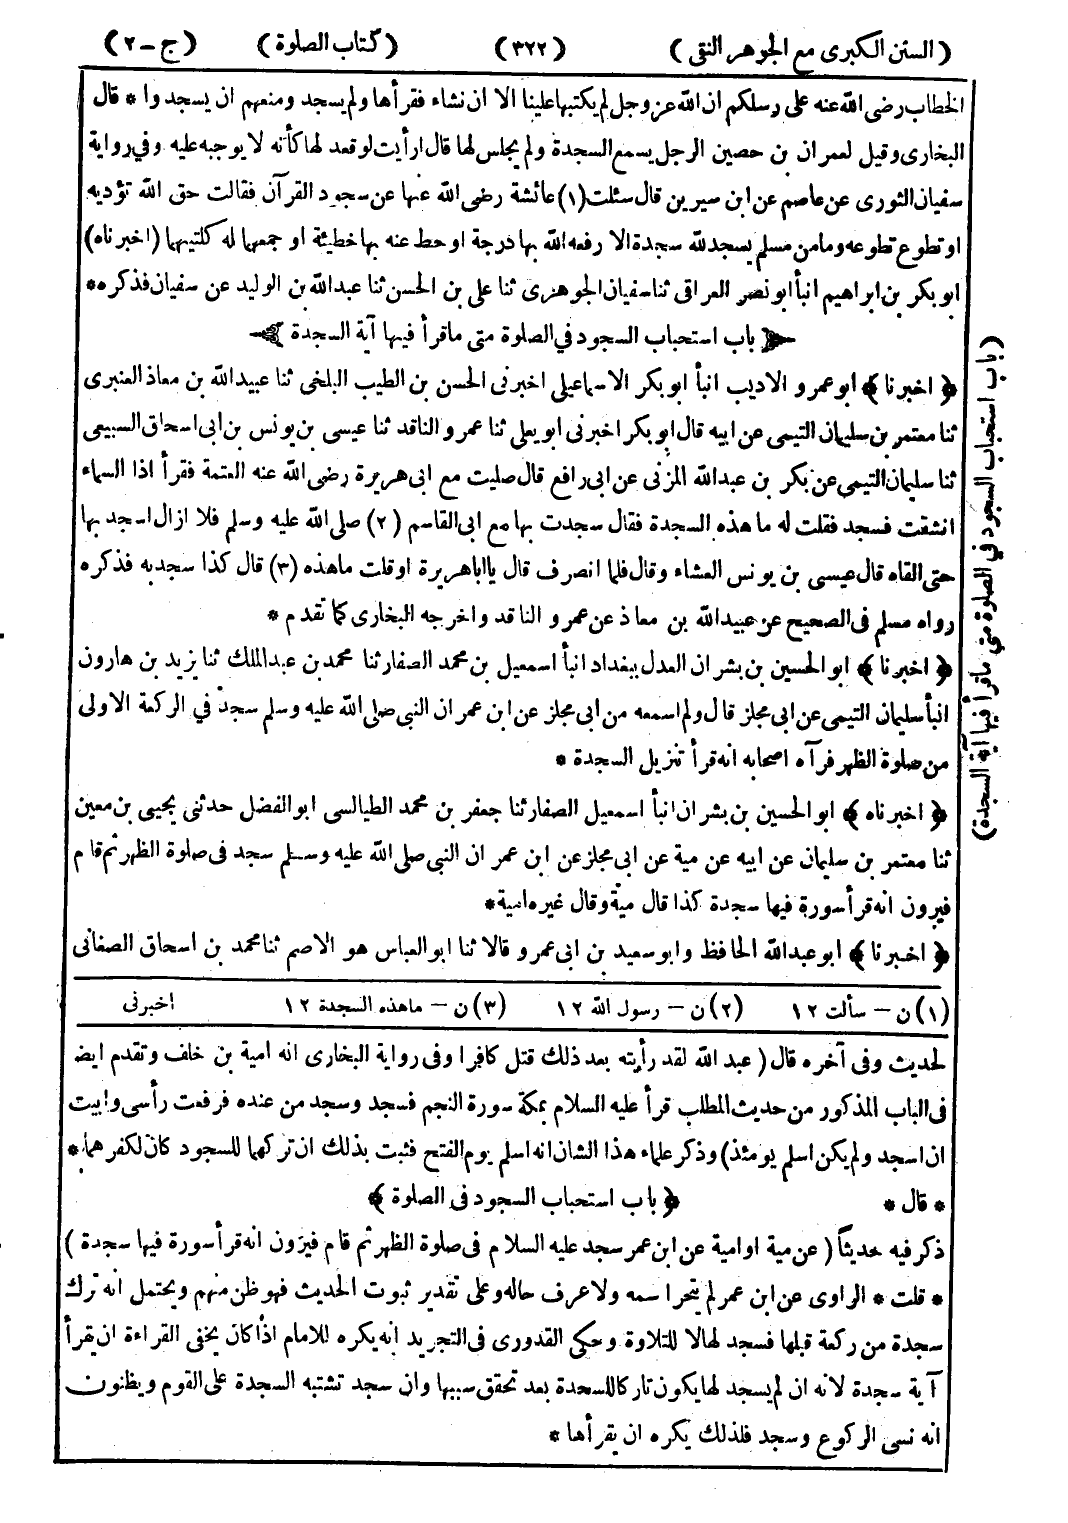 (السنن الكبرى مع الجوهر النقى) (٣٢٢) (كتاب الصلوة) (ج-٢)
الخطاب رضى الله عنه على رسلكم ان الله عز وجل لم يكتبها علينا الا ان نشاء فقرأها ولم يسجد ومنعهم ان يسجد وا * قال
البخارى وقيل لعمران بن حصين الرجل يسمع السجدة ولم يجلس لها قال ارأيت لو قعد لها كأنه لا يوجبه عليه وفي رواية
سفيان الثورى عن عاصم عن ابن سيرين قال سئلت (١) عائشة رضى الله عنها عن سجود القرآن فقالت حق الله تؤديه
او تطوع تطوعه وما من مسلم يسجد لله سجدة الا رفعه الله بها درجة او حط عنه بها خطيئة او جمعها له كلتيهما (اخبرناه)
ابو بكر بن ابراهيم انبأ ابو نصر العراقى ثنا سفيان الجوهرى ثنا على بن الحسن ثنا عبد الله بن الوليد عن سفيان فذكره *
باب استحباب السجود في الصلوة متى ما قرأ فيها آية السجدة
﴿ اخبرنا ﴾ ابو عمرو الاديب انبأ ابو بكر الاسماعيلى اخبرنى الحسن بن الطيب البلخى ثنا عبيد الله بن معاذ العنبرى
ثنا معتمر بن سليمان التيمى عن ابيه قال ابو بكر اخبرنى ابو يعلى ثنا عمرو الناقد ثنا عيسى بن يونس بن ابى اسحاق السبيعى
ثنا سليمان التيمى عن بكر بن عبد الله المزنى عن ابى رافع قال صليت مع ابى هريرة رضى الله عنه العتمة فقرأ اذا السماء
انشقت فسجد فقلت له ما هذه السجدة فقال سجدت بها مع ابى القاسم (٢) صلى الله عليه وسلم فلا ازال اسجد بها
حتى القاه قال عيسى بن يونس العشاء وقال فلما انصرف قال يا ابا هريرة او قلت ما هذه (٣) قال كذا سجد به فذكره
رواه مسلم فى الصحيح عن عبيد الله بن معاذ عن عمرو الناقد واخرجه البخارى كما تقدم *
﴿ اخبرنا ﴾ ابو الحسين بن بشران العدل ببغداد انبأ اسمعيل بن محمد الصفار ثنا محمد بن عبد الملك ثنا يزيد بن هارون
انبأ سليمان التيمى عن ابى مجلز قال ولم اسمعه من ابى مجلز عن ابن عمر ان النبى صلى الله عليه وسلم سجد في الركعة الاولى
من صلوة الظهر فرآه اصحابه انه قرأ تنزيل السجدة *
﴿ اخبرناه ﴾ ابو الحسين بن بشران انبأ اسمعيل الصفار ثنا جعفر بن محمد الطيالسى ابو الفضل حدثنى يحيى بن معين
ثنا معتمر بن سليمان عن ابيه عن مية عن ابى مجلز عن ابن عمر ان النبى صلى الله عليه وسلم سجد فى صلوة الظهر ثم قام
فيرون انه قرأ سورة فيها سجدة كذا قال مية وقال غيره امية *
﴿ اخبرنا ﴾ ابو عبد الله الحافظ وابو سعيد بن ابى عمرو قالا ثنا ابو العباس هو الاصم ثنا محمد بن اسحاق الصغانى
(١) ن - سألت ١٢ (٢) ن - رسول الله ١٢ (٣) ن - ما هذه السجدة ١٢ اخبرنى
لحديث وفى آخره قال (عبد الله لقد رأيته بعد ذلك قتل كافرا وفى رواية البخارى انه امية بن خلف وتقدم ايضا
فى الباب المذكور من حديث المطلب قرأ عليه السلام بمكة سورة النجم فسجد وسجد من عنده فرفعت رأسى وابيت
ان اسجد ولم يكن اسلم يومئذ) وذكر علماء هذا الشان انه اسلم يوم الفتح فثبت بذلك ان تركهما للسجود كان لكفرهما *
* قال * ﴿ باب استحباب السجود فى الصلوة ﴾
ذكر فيه حديثاً (عن مية او امية عن ابن عمر سجد عليه السلام فى صلوة الظهر ثم قام فيرون انه قرأ سورة فيها سجدة)
* قلت * الراوى عن ابن عمر لم يتحر اسمه ولا عرف حاله وعلى تقدير ثبوت الحديث فهو ظن منهم ويحتمل انه ترك
سجدة من ركعة قبلها فسجد لها لا للتلاوة وحكى القدورى فى التجريد انه يكره للامام اذا كان يخفى القراءة ان يقرأ
آية سجدة لانه ان لم يسجد لها يكون تاركا للسجدة بعد تحقق سببها وان سجد تشتبه السجدة على القوم ويظنون
انه نسى الركوع وسجد فلذلك يكره ان يقرأها *
(باب استحباب السجود في الصلوة متى ما قرأ فيها آية السجدة)